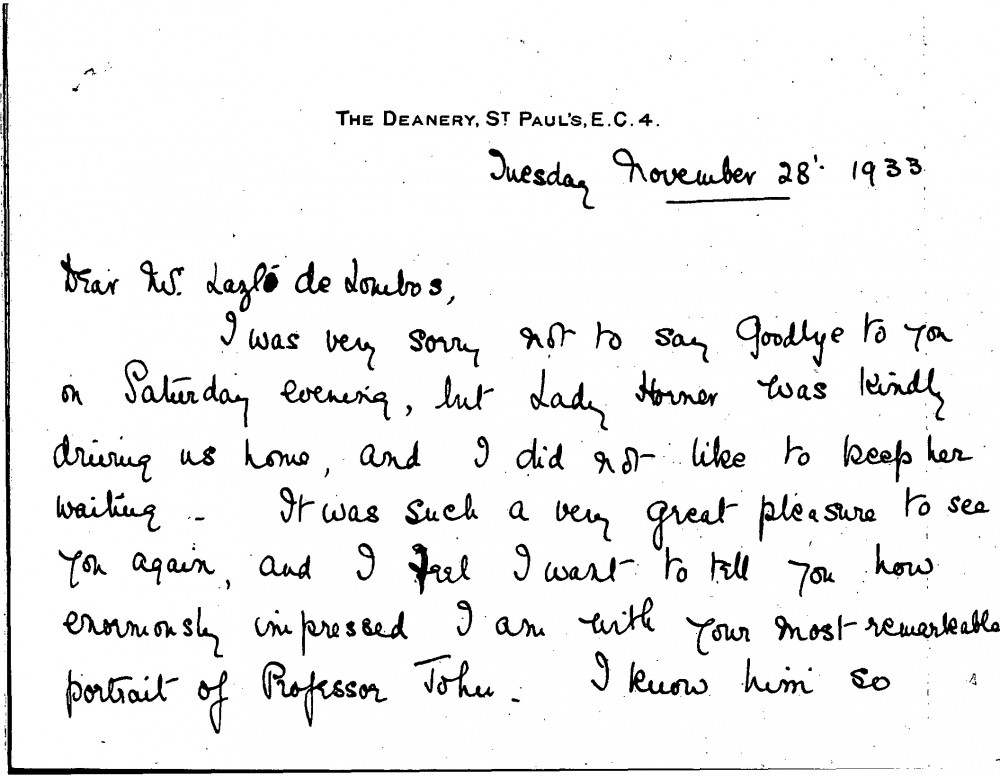 THE DEANERY, ST PAUL'S, E.C.4.
Tuesday November 28. 1933
Dear Mr. Lazló de Lombos,
I was very sorry not to say Goodbye to you
on Saturday evening, but Lady Horner was kindly
driving us home, and I did not like to keep her
waiting - It was such a very great pleasure to see
you again, and I feel I want to tell you how
enormously impressed I am with your most remarkable
portrait of Professor John. I know him so